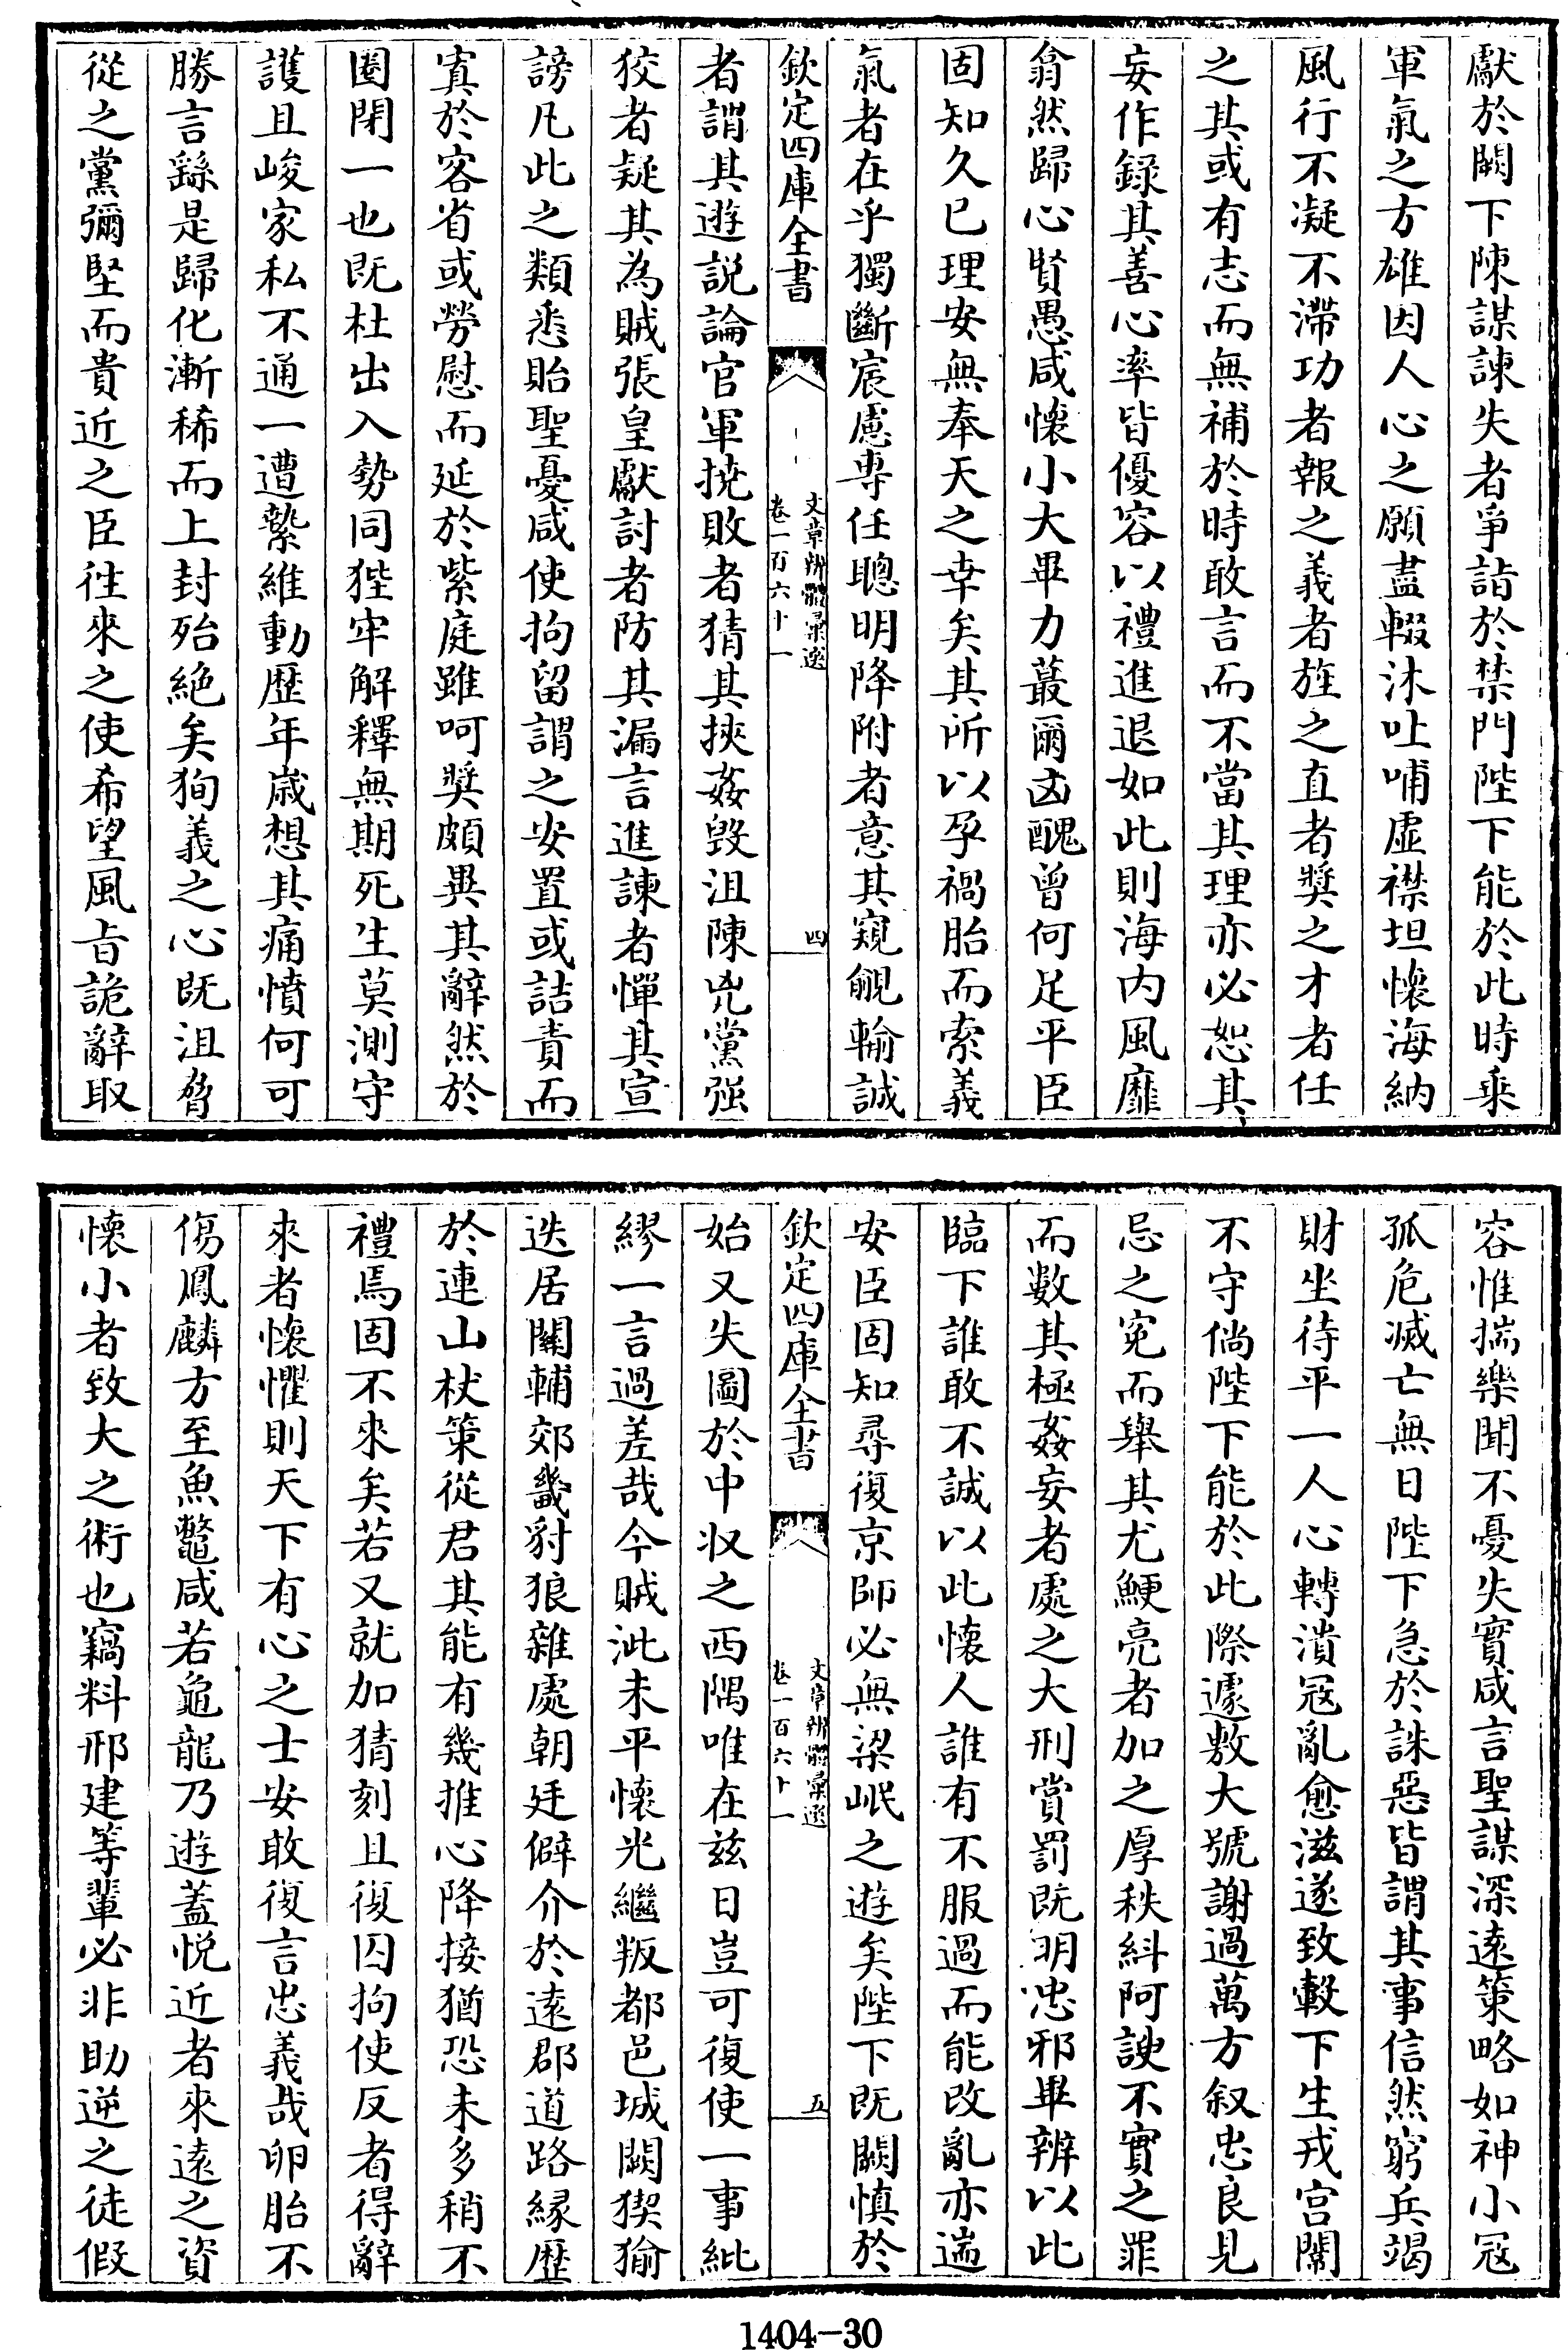 獻於闕下陳謀諫失者爭詣於禁門陛下能於此時乘
軍氣之方雄因人心之願盡輟沐吐哺虛襟坦懷海納
風行不凝不滯功者報之義者旌之直者獎之才者任
之其或有志而無補於時敢言而不當其理亦必恕其
妄作録其善心率皆優容以禮進退如此則海内風靡
翕然歸心賢愚咸懷小大畢力蕞爾凶醜曾何足平臣
固知久已理安無奉天之幸矣其所以孕禍胎而索義
氣者在乎獨斷宸慮専任聰明降附者意其窺覦輸誠
欽定四庫全書
文章辨體彙選
卷一百六十一
四
者謂其遊説論官軍撓敗者猜其挾姦毀沮陳兇黨强
狡者疑其為賊張皇獻討者防其漏言進諫者憚其宣
謗凡此之類悉貽聖憂咸使拘留謂之安置或詰責而
寘於客省或勞慰而延於紫庭雖呵奬頗異其辭然於
圏閉一也既杜出入勢同狴牢解釋無期死生莫測守
護且峻家私不通一遭縶維動歴年歳想其痛憤何可
勝言繇是歸化漸稀而上封殆絶矣狥義之心既沮脅
從之黨彌堅而貴近之臣往來之使希望風㫖詭辭取
容惟揣樂聞不憂失實咸言聖謀深遠策略如神小冦
孤危滅亡無日陛下急於誅惡皆謂其事信然窮兵竭
財坐待平一人心轉潰冦亂愈滋遂致轂下生戎宫闈
不守倘陛下能於此際遽敷大號謝過萬方叙忠良見
忌之寃而舉其尤鯁亮者加之厚秩糾阿諛不實之罪
而數其極姦妄者處之大刑賞罰既明忠邪畢辨以此
臨下誰敢不誠以此懷人誰有不服過而能改亂亦遄
安臣固知尋復京師必無梁岷之遊矣陛下既闕慎於
欽定四庫全書
文章辨體彙選
卷一百六十一
五
始又失圖於中収之西隅唯在兹日豈可復使一事紕
繆一言過差哉今賊泚未平懷光繼叛都邑城闕猰㺄
迭居關輔郊畿豺狼雜處朝廷僻介於遠郡道路緣歴
於連山杖策從君其能有幾推心降接猶恐未多稍不
禮焉固不來矣若又就加猜刻且復囚拘使反者得辭
來者懷懼則天下有心之士安敢復言忠義哉卵胎不
傷鳳麟方至魚鼈咸若龜龍乃遊蓋悦近者來遠之資
懷小者致大之術也竊料邢建等輩必非助逆之徒假
1404-30